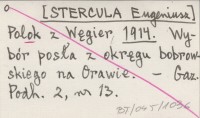 [STERCULA Eugeniusz]
Polok z Węgier, 1914. Wy-
bór posła z okręgu bobrow-
skiego na Orawie. – Gaz.
Podh. 2, nr 13.